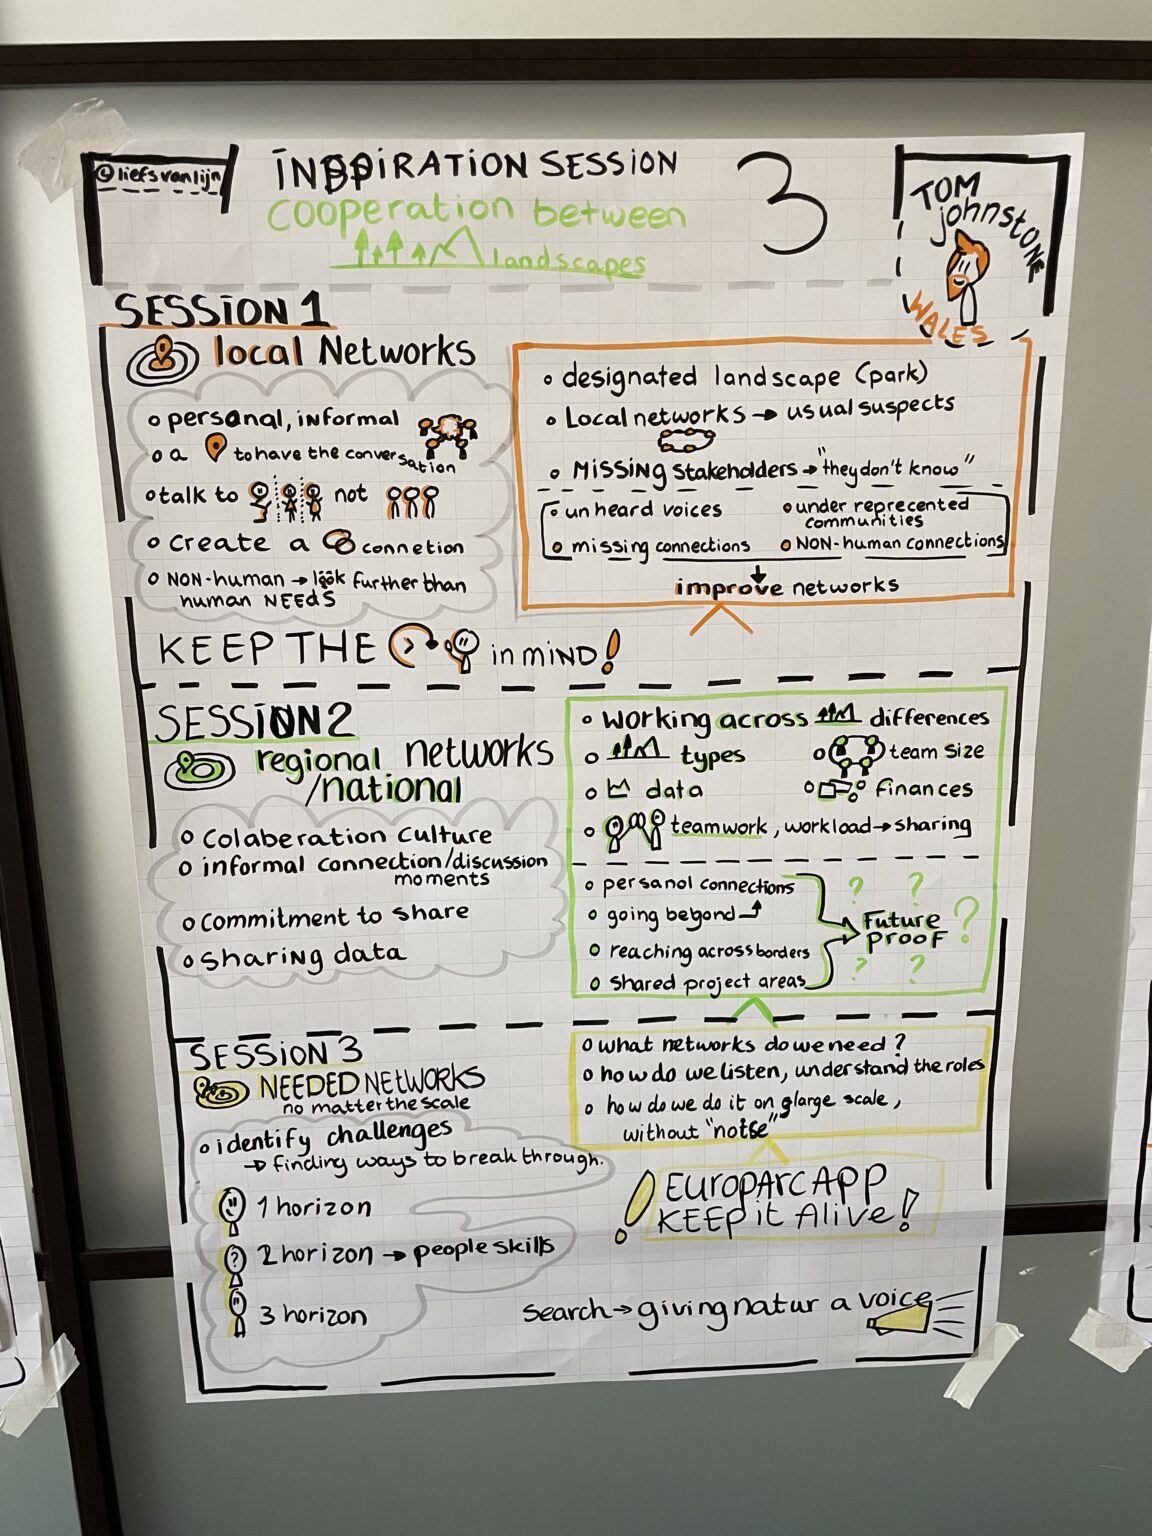 ©liefsvanlijn
INSPIRATION SESSION
3
Cooperation between
landscapes
TOM
johnstone
WALES
SESSION 1
local Networks
o personal, informal
o a to have the conversation
o talk to not
o create a connetion
o NON-human → look further than
human NEEDS
o designated landscape (park)
o Local networks → usual suspects
o MISSING Stakeholders → "they don't know"
o unheard voices
o under reprecented
communities
o missing connections
o NON-human connections
improve networks
KEEP THE in miND!
SESSION 2
regional networks
/national
o colaberation culture
o informal connection/discussion
moments
o commitment to share
o sharing data
o working across differences
o types
o team size
o data
o finances
o teamwork, workload → sharing
o persanol connections
o going beyond
o reaching across borders
o shared project areas
? ?
Future
proof ?
? ?
SESSION 3
NEEDED NETWORKS
no matter the scale
o identify challenges
→ finding ways to break through.
1 horizon
? 2 horizon → people skills
3 horizon
o what networks do we need?
o how do we listen, understand the roles
o how do we do it on large scale,
without "
! EUROPARC APP
KEEP it Alive!
Search → giving natur a voice